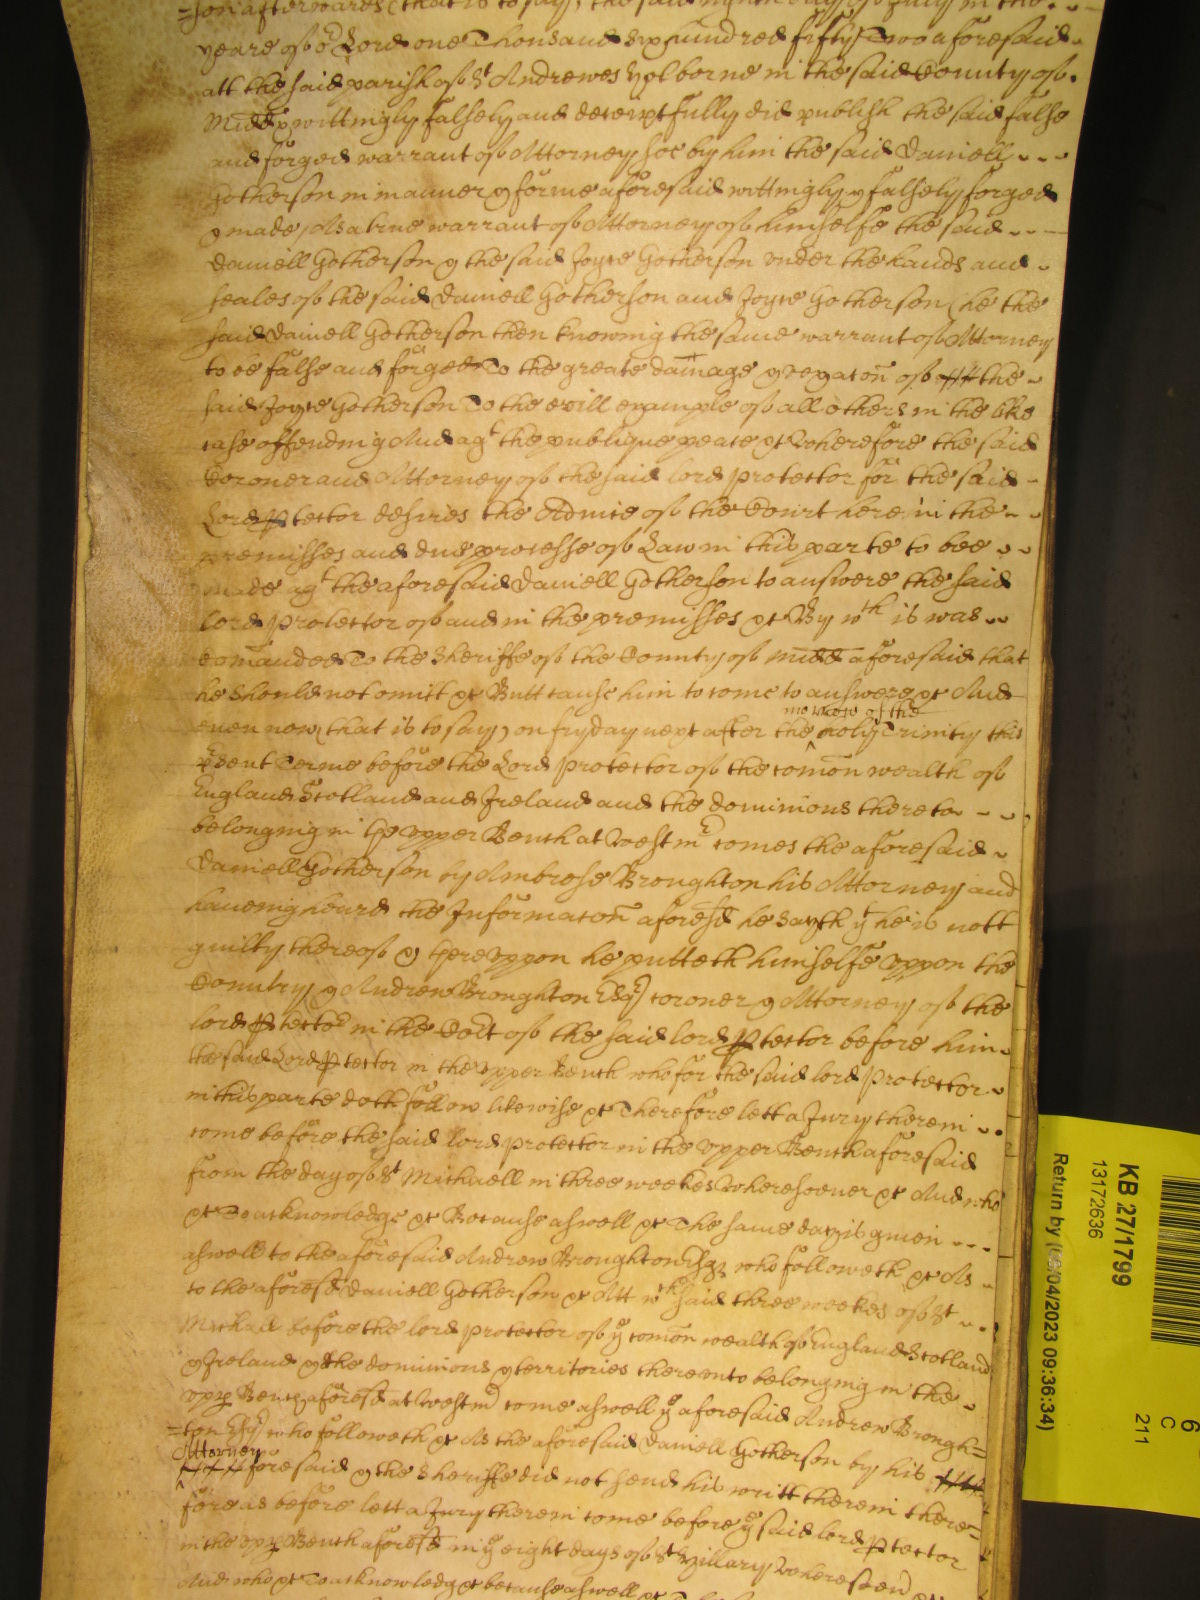 =son afterwards (that is to say) the said nynth day of July in the
yeare of or Lord one Thousand six hundred fifty Two aforesaid
att the said parish of St Andrewes Holborne in the said County of
Midd wittingly falsely and deceiptfully did publish the said false
and forged warrant of Attorney soe by him the said Daniell
Gotherson in manner & forme aforesaid wittingly & falsely forged
& made As a true warrant of Attorney of himselfe the said
Daniell Gotherson & the said Joyce Gotherson under the hands and
seales of the said Daniell Gotherson and Joyce Gotherson (he the
said Daniell Gotherson then knowing the same warrant of Attorney
to be false and forged) To the greate damage & vexacon of the
said Joyce Gotherson To the evill example of all others in the like
case offending And agt the publique peace &c Wherefore the said
Coroner and Attorney of the said lord Protector for the said
Lord Ptector desires the Advice of the Court here in the
premisses and due processe of Law in this parte to bee
made agt the aforesaid Daniell Gotherson to answere the said
lord Protector of and in the premisses &c By wch it was
comanded To the Sheriffe of the County of Midd aforesaid that
he should not omitt &c Butt cause him to come to answere &c And
morrow of the
even now (that is to say) on fryday next after the holy Trinity this
psent Terme before the Lord Protector of the comon wealth of
England Scotland and Ireland and the dominions thereto
belonging in the upper Bench at Westmr comes the aforesaid
Daniell Gotherson by Ambrose Broughton his Attorney and
haveing heard the Informacon aforesd he sayth yt he is nott
guilty thereof & thereuppon he putteth himselfe uppon the
Country & Andrew Broughton Esqr coroner & Attorney of the
lord Ptector in the Cort of the said lord Ptector before him
the said Lord Ptector in the upper Bench who for the said lord Protector
in this parte doth follow likewise &c Therefore lett a Jury therein
come before the said lord Protector in the upper Bench aforesaid
from the day of St Michaell in three weekes Wheresoever &c And who
&c To acknowledge &c Because aswell &c The same day is given
aswell to the aforesaid Andrew Broughton Esqr who followeth &c As
to the aforesd Daniell Gotherson &c Att wch said three weekes of St
Michaell before the lord Protector of ye comon wealth of England Scotland
& Ireland & the dominions & territories thereunto belonging in the
upp Bench aforesd at Westmr come aswell ye aforesaid Andrew Brough=
=ton Esqr who followeth &c As the aforesaid Daniell Gotherson by his
Attorney
foresaid & the Sheriffe did not send his writt therein there=
fore as before lett a Jury therein come before ye said lord Ptector
in the upp Bench aforesd in ye eight days of St Hillary Wheresoevr
And who &c To acknowledg &c because aswell &c
KB 27/1799
13172636
Return by (08/04/2023 09:36:34)
6
C
211